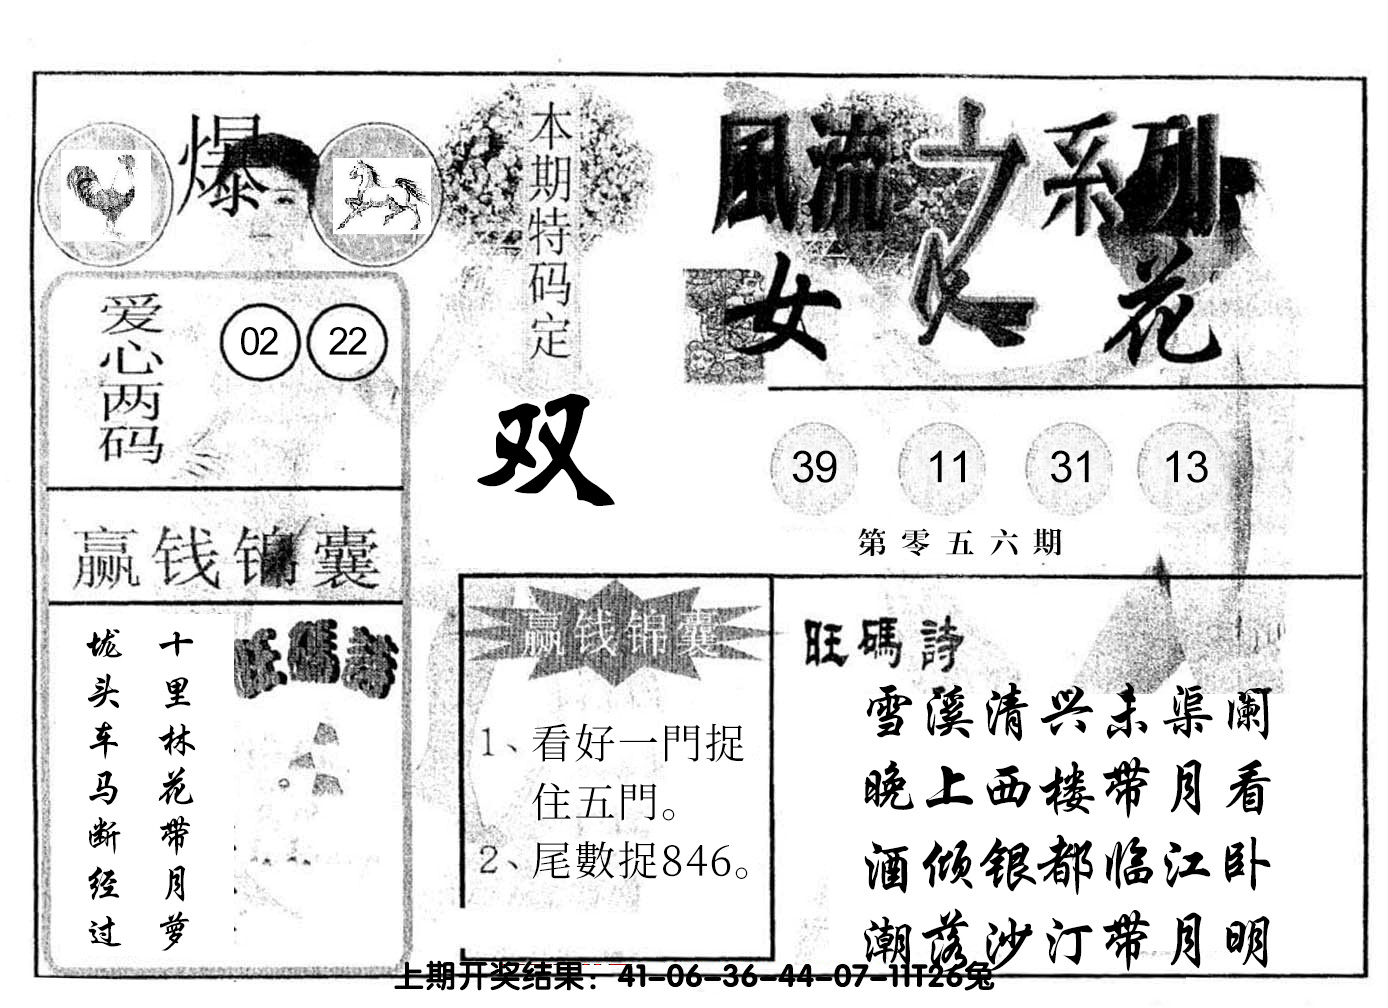 爆
本期特码定
双
風流之系列
女人花
爱心两码
02 22
39 11 31 13
第零五六期
赢钱锦囊
旺碼詩
十里林花带月萝
垅头车马断经过
赢钱锦囊
1、看好一門捉
住五門。
2、尾數捉846。
旺碼詩
雪溪清兴未渠阑
晚上西楼带月看
酒倾银都临江卧
潮落沙汀带月明
上期开奖结果：41-06-36-44-07-11T26兔